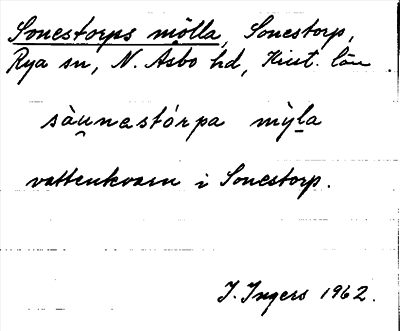 Sonestorps mölla, Sonestorp,
Rya sn, N. Åsbo hd, Krist. län
sàu̯nastórpa mỳl̲a
vattenkvarn i Sonestorp.
I. Ingers 1962.